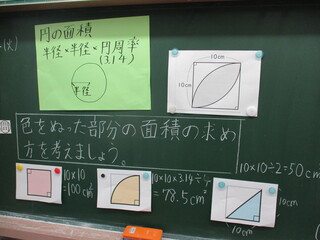 円の面積
半径×半径×円周率
(3.14)
半径
10cm
10cm
問
色をぬった部分の面積の求め
方を考えましょう。
10×10
=100cm²
10×10×3.14÷
=78.5cm²
10×10÷2=50cm
10cm
10cm